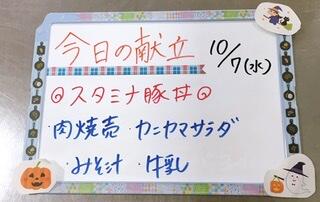 今日の献立 10/7(水)
◎スタミナ豚丼◎
・肉焼売 ・カニヤマサラダ
・みそ汁 ・牛乳